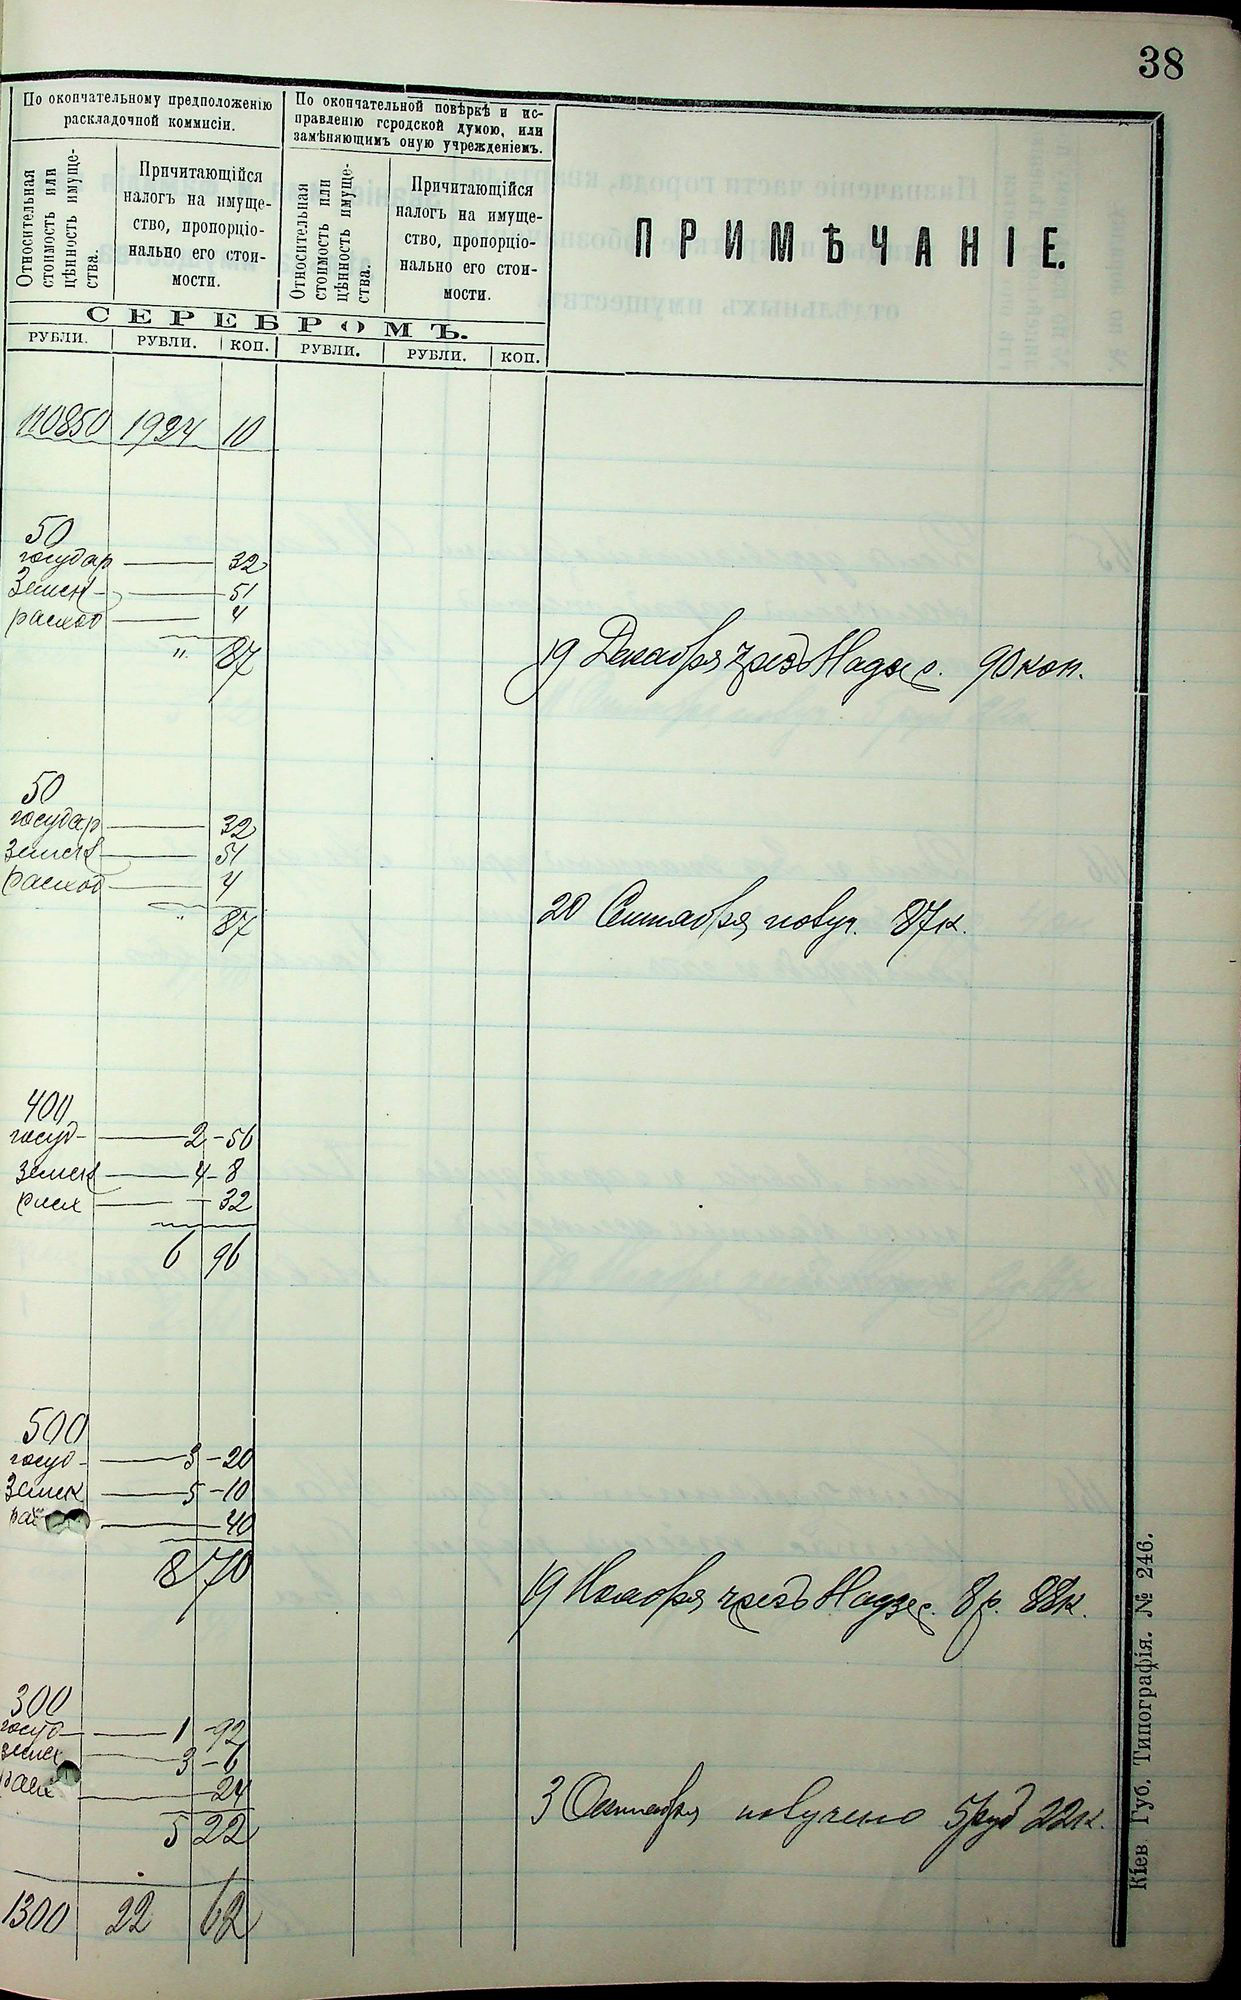 38
По окончательному предположенію
раскладочной коммисіи.
По окончательной повѣркѣ и ис-
правленію городской думою, или
замѣняющимъ оную учрежденіемъ.
Относительная
стоимость или
цѣнность имуще-
ства.
Причитающійся
налогъ на имуще-
ство, пропорціо-
нально его стои-
мости.
Относительная
стоимость или
цѣнность имуще-
ства.
Причитающійся
налогъ на имуще-
ство, пропорціо-
нально его стои-
мости.
ПРИМѢЧАНІЕ.
СЕРЕБРОМЪ.
РУБЛИ. РУБЛИ. КОП. РУБЛИ. РУБЛИ. КОП.
110850 1924 10
50
государ 32
Земск 51
расход 4
" 87
19 Декабря чрез Надзс. 90 коп.
50
государ 32
земск 51
расход 4
" 87
20 Сентября получ. 87к.
400
госуд- 2-56
земск 4-8
расх 32
6 96
500
госуд- 3-20
Земск 5-10
40
8 70
19 Ноября чрезъ Надзс. 8р. 88к.
300
госуд 1-92
земск 3-6
24
5 22
3 Октября получено 5 руб 22к.
1300 22 62
Кіев Губ. Типографія. № 246.